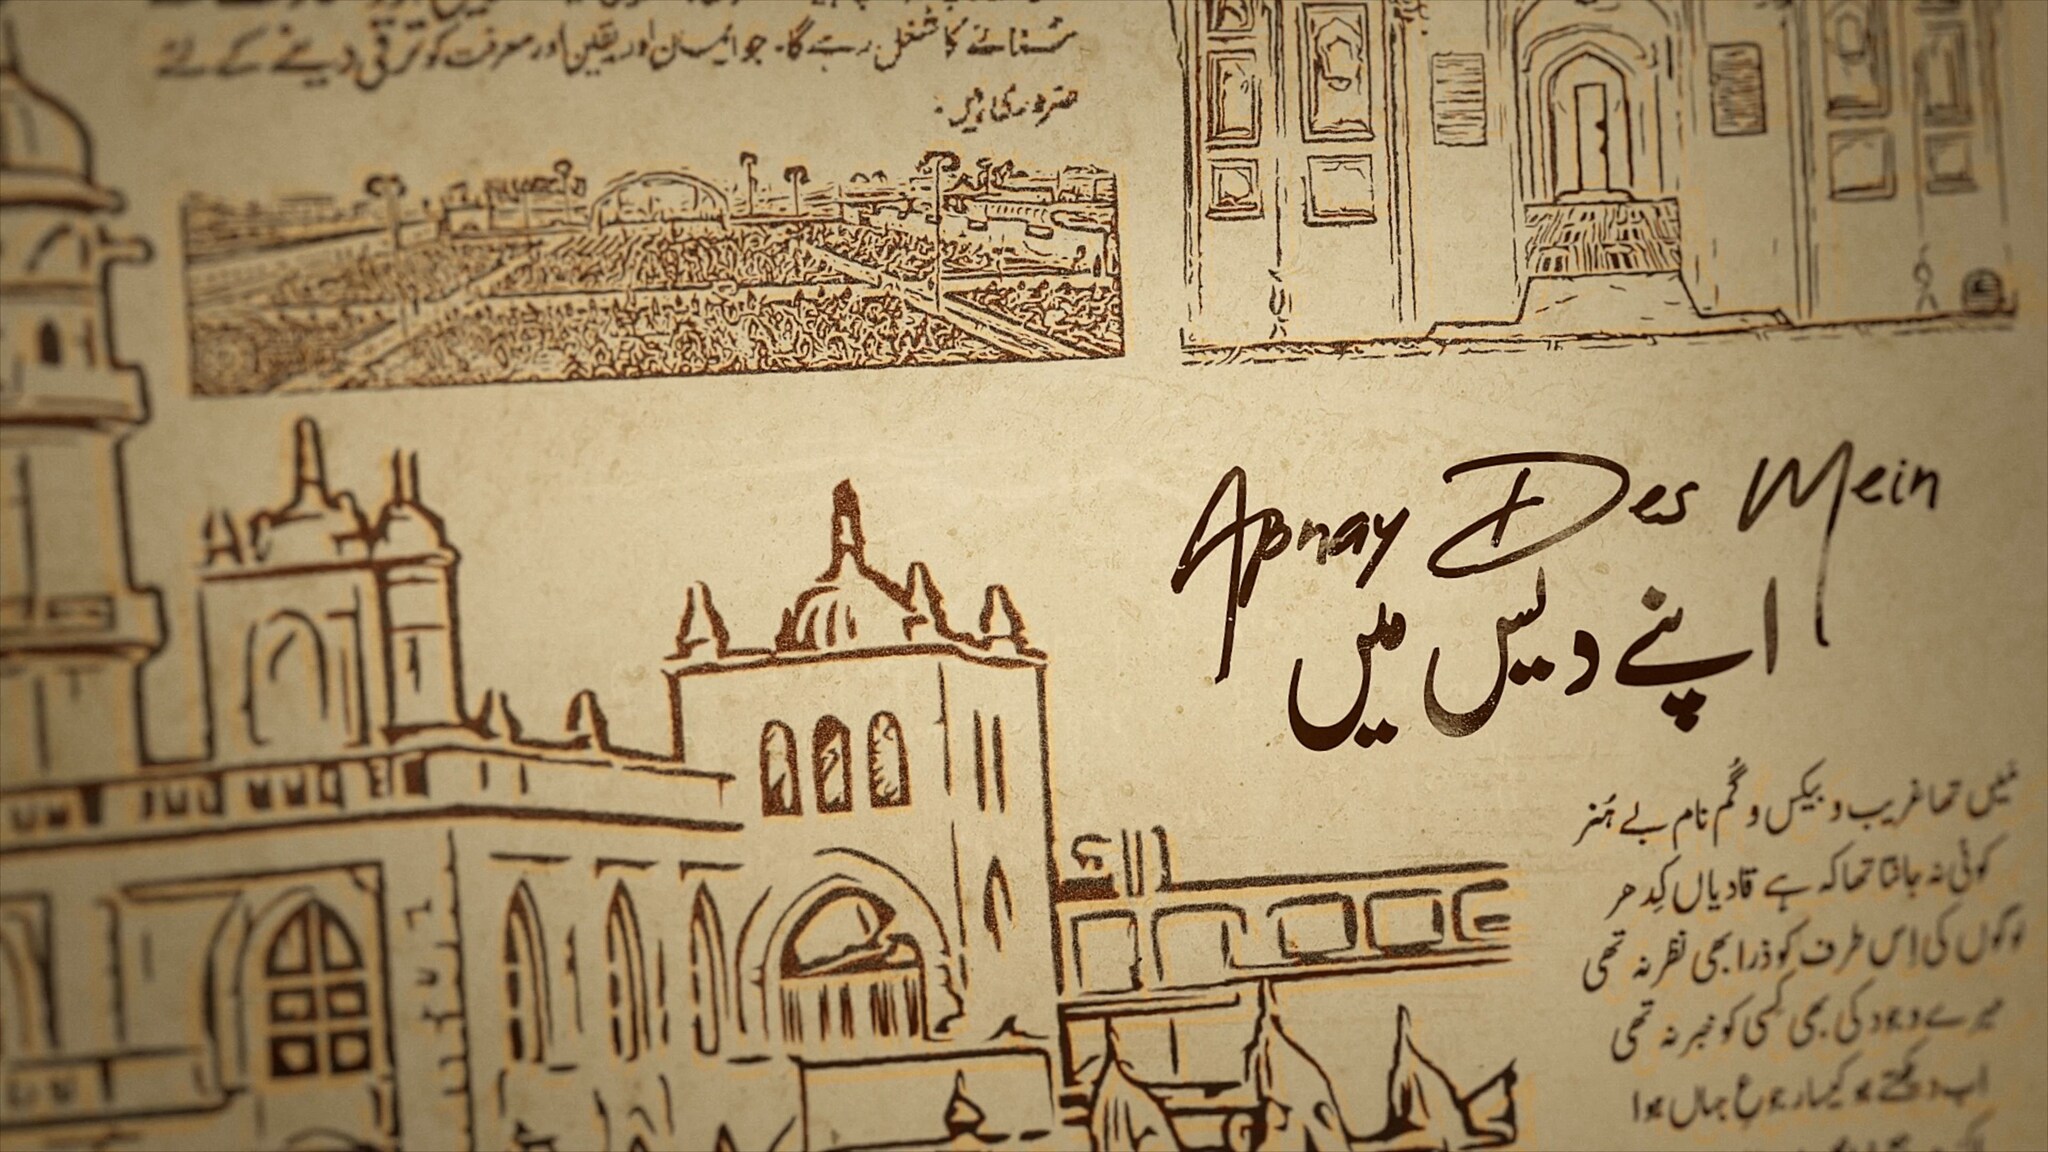 سُنانے کا شغل رہے گا۔ جو ایمان اور یقین اور معرفت کو ترقی دینے کے لئے
ضروری ہیں۔
Apnay Des Mein
اپنے دیس میں
مَیں تھا غریب و بیکس و گُم نام بے ہُنر
کوئی نہ جانتا تھا کہ ہے قادیاں کِدھر
لوگوں کی اِس طرف کو ذرا بھی نظر نہ تھی
میرے وجود کی بھی کسی کو خبر نہ تھی
اب دیکھتے ہو کیسا رجوعِ جہاں ہوا